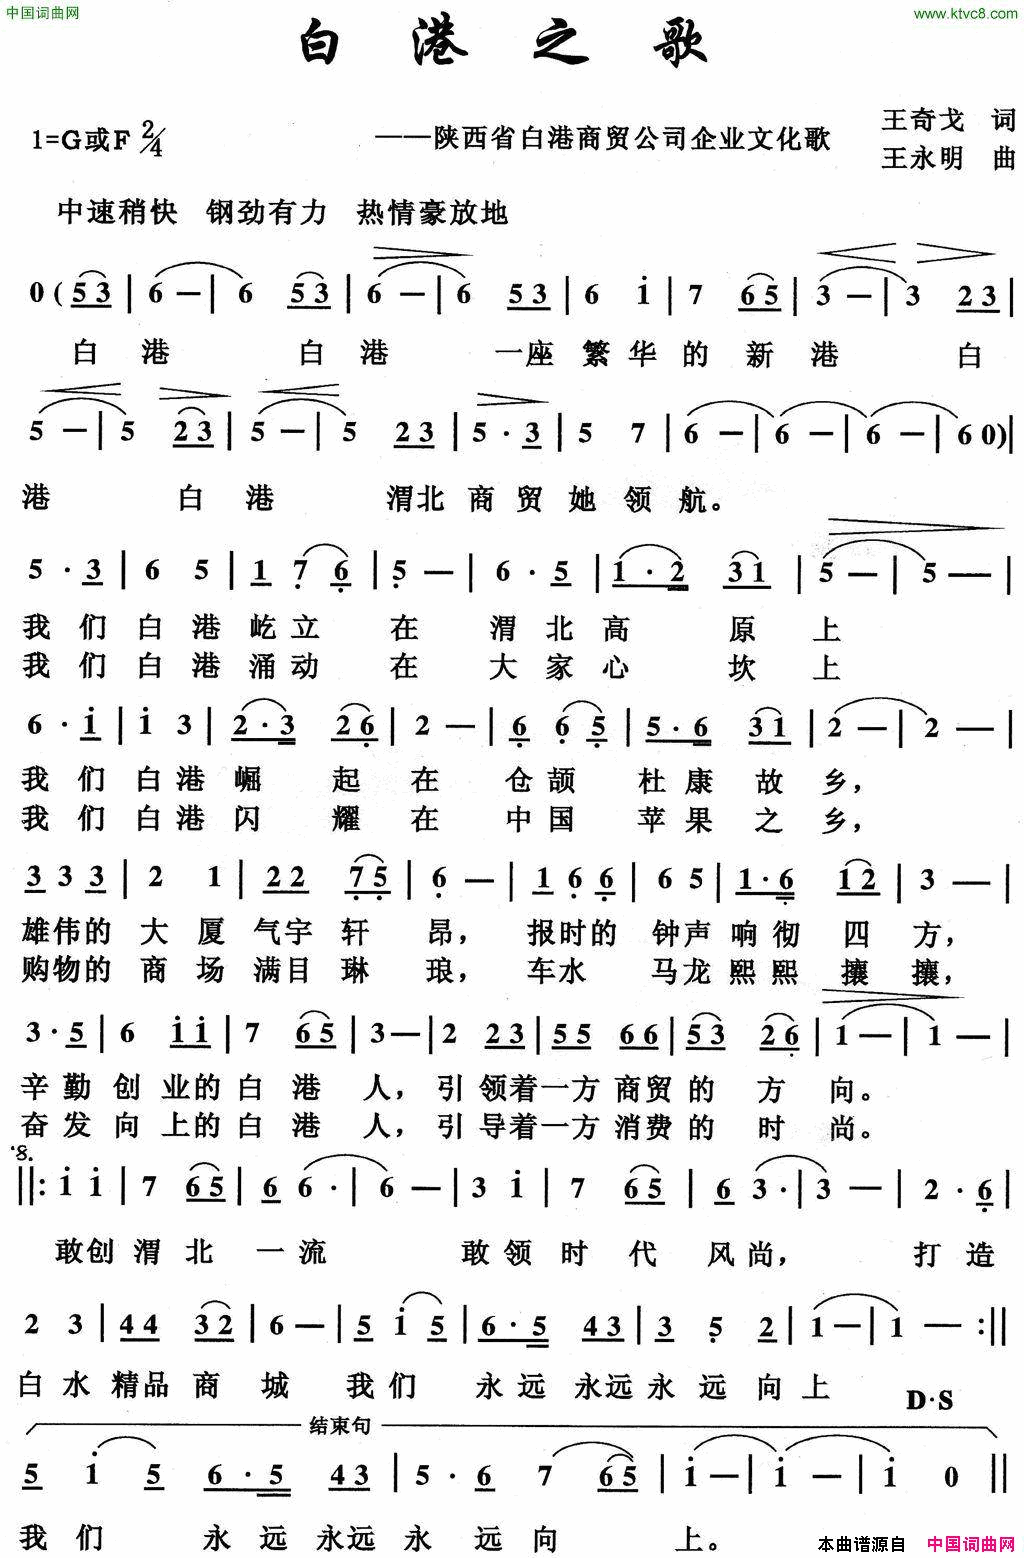 中国词曲网
www.ktvc8.com
白港之歌
1=G或F 2/4
——陕西省白港商贸公司企业文化歌
王奇戈 词
王永明 曲
中速稍快 钢劲有力 热情豪放地
0 ( 5 3 | 6 — | 6 5 3 | 6 — | 6 5 3 | 6 i | 7 6 5 | 3 — | 3 2 3 |
白 港 白 港 一座 繁 华 的 新 港 白
5 — | 5 2 3 | 5 — | 5 2 3 | 5 · 3 | 5 7 | 6 — | 6 — | 6 — | 6 0 ) |
港 白 港 渭北 商 贸 她 领 航。
5 · 3 | 6 5 | 1 7 6 | 5 — | 6 · 5 | 1 · 2 3 1 | 5 — | 5 — |
我 们 白 港 屹 立 在 渭 北 高 原 上
我 们 白 港 涌 动 在 大 家 心 坎 上
6 · i | i 3 | 2 · 3 2 6 | 2 — | 6 6 5 | 5 · 6 3 1 | 2 — | 2 — |
我 们 白 港 崛 起 在 仓 颉 杜 康 故 乡，
我 们 白 港 闪 耀 在 中 国 苹 果 之 乡，
3 3 3 | 2 1 | 2 2 7 5 | 6 — | 1 6 6 | 6 5 | 1 · 6 1 2 | 3 — |
雄伟的 大 厦 气宇 轩 昂， 报时的 钟声 响 彻 四 方，
购物的 商 场 满目 琳 琅， 车水 马龙 熙 熙 攘 攘，
3 · 5 | 6 i i | 7 6 5 | 3 — | 2 2 3 | 5 5 6 6 | 5 3 2 6 | 1 — | 1 — |
辛 勤 创 业的 白 港 人， 引 领着一方 商贸 的 方 向。
奋 发 向 上的 白 港 人， 引 导着一方 消费 的 时 尚。
||: i i | 7 6 5 | 6 6 · | 6 — | 3 i | 7 6 5 | 6 3 · | 3 — | 2 · 6 |
敢创 渭 北 一 流 敢 领 时 代 风尚， 打 造
2 3 | 4 4 3 2 | 6 — | 5 i 5 | 6 · 5 4 3 | 3 5 2 | 1 — | 1 — :||
白 水 精品 商 城 我 们 永 远 永远 永 远 向 上
D·S
结束句
5 i 5 6 · 5 4 3 | 5 · 6 7 6 5 | i — | i — | i 0 ||
我 们 永 远 永远 永 远 向 上。
本曲谱源自 中国词曲网